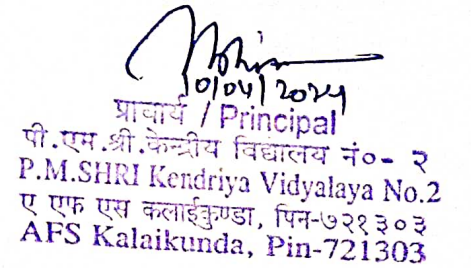 10/04/2024
प्राचार्य / Principal
पी.एम.श्री.केन्द्रीय विद्यालय नं०- २
P.M.SHRI Kendriya Vidyalaya No.2
ए एफ एस कलाईकुण्डा, पिन-७२१३०३
AFS Kalaikunda, Pin-721303